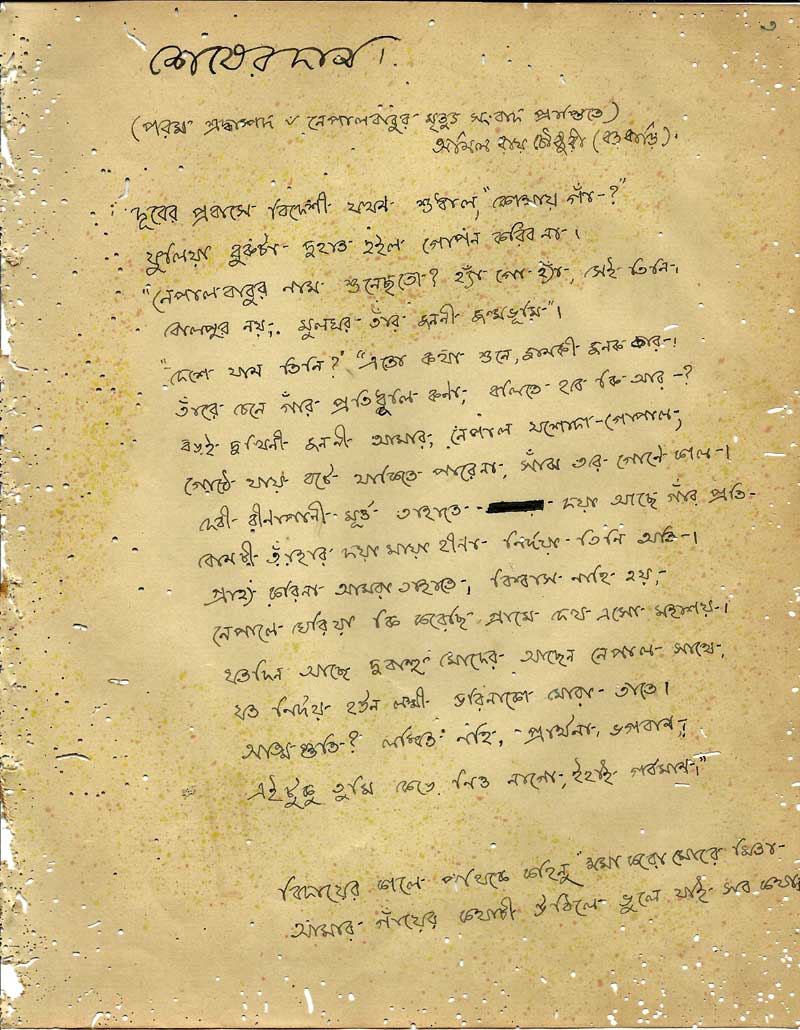 ৩
শেষের দান।
(পরম শ্রদ্ধাস্পদ ৺ নেপালবাবুর মৃত্যুর সংবাদ প্রাপ্তিতে)
অনিল রায় চৌধুরী (বড়বাড়ি)।
দূরের প্রবাসে বিদেশী যখন শুধাল, "কোথায় গাঁ-?"
ফুলিয়া বুকটা দুহাত হইল গোপন করিব না।
"নেপালবাবুর নাম শুনেছতো? হ্যাঁ গো হ্যাঁ, সেই তিনি।
বোলপুর নয়, মূলঘর তাঁর জননী জন্মভূমি"।
"দেশে যান তিনি?" "এতো কথা শুনে, জানকী জনক কার-!
তাঁরে চেনে গাঁর প্রতিধূলি কনা, বলিতে হবে কি আর-?
বড়ই দুখিনী জননী আমার; নেপাল যশোদা-গোপাল,
গোঠে যায় বটে থাকিতে পারেনা, সাঁঝ তার গোনে কাল।
দেবী বীনাপানী মূর্ত্ত তাহাতে দয়া আছে গাঁর প্রতি-
তাঁহার দয়া মায়া হীনা নির্দয়া তিনি অতি-।
গ্রাহ্য করিনা আমরা তাহাতে, বিশ্বাস নাহি হয়,-
নেপালে ঘেরিয়া কি করেছি গ্রামে দেখ এসো মহাশয়।
যতদিন আছে দুবাহু মোদের আছেন নেপাল সাথে,
যত নির্দয় হউন লক্ষ্মী ডরিনাকো মোরা তাতে।
আত্ম স্তুতি? লজ্জিত নহি, - প্রার্থনা, ভগবান,
এইটুকু তুমি কেড়ে নিও নাগো, ইহাই গর্বমান।"
বিদায়ের কালে পথিকে কহিনু "ক্ষমা করো মোরে মিতা-
আমার গাঁয়ের কথাটী উঠিলে ভুলে যাই সব কথা